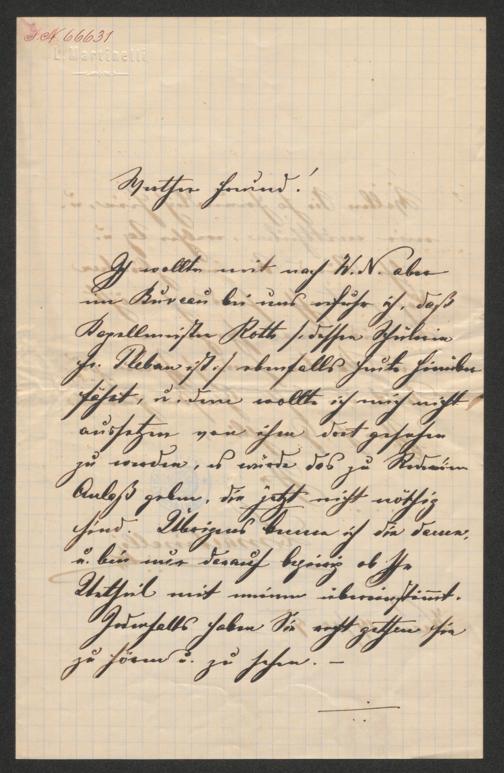 J.N. 66631
L. Martinelli
Werther Freund!
Ich wollte mit nach W.N. aber
im Bureau bei uns erfuhr ich, daß
Kapellmeister Roth /:dessen Schülerin
Fr. Kleban ist:/ ebenfalls heute hinüber
fährt, u. dem wollte ich mich nicht
aussetzen von ihm dort gesehen
zu werden, es würde das zu Redereien
Anlaß geben, die jetzt nicht nöthig
sind. Übrigens kenne ich die Dame,
u. bin nur darauf begierig ob Ihr
Urtheil mit meinem übereinstimmt.
Jedenfalls haben Sie recht gethan sie
zu hören u. zu sehen. —